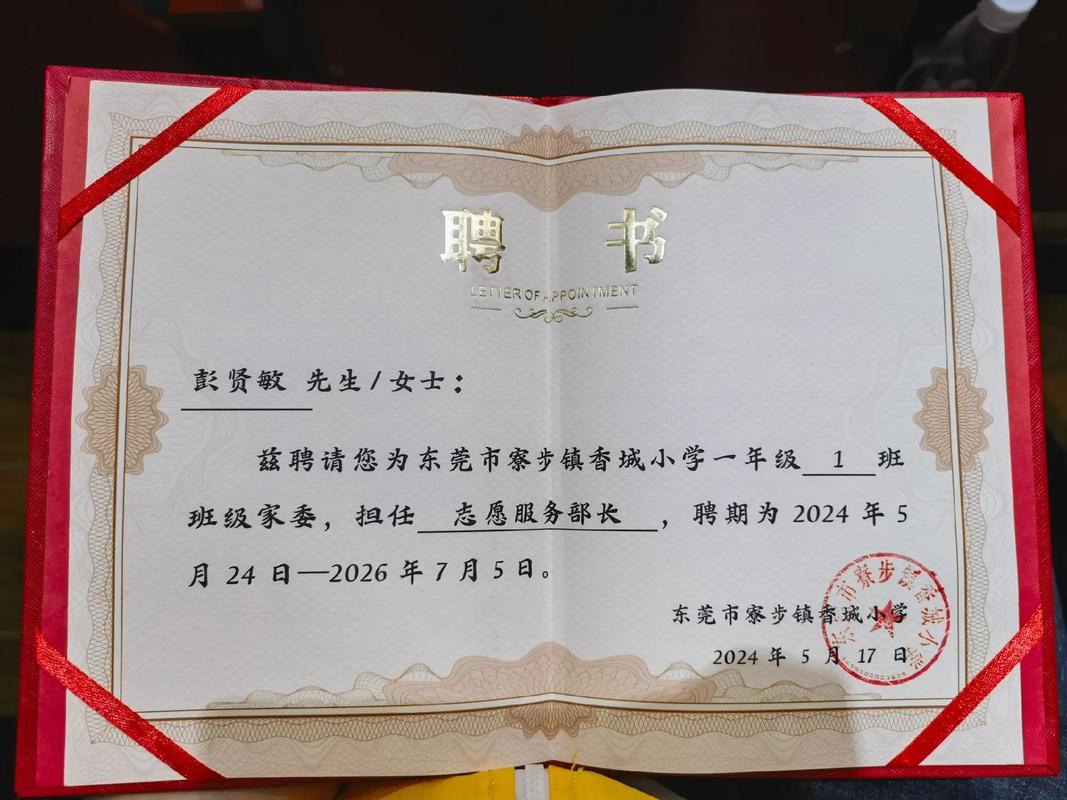 聘 书
LETTER OF APPOINTMENT
彭贤敏 先生/女士：
兹聘请您为东莞市寮步镇香城小学一年级 1 班
班级家委，担任 志愿服务部长 ，聘期为 2024 年 5
月 24 日—2026 年 7 月 5 日。
东莞市寮步镇香城小学
2024 年 5 月 17 日
东莞市寮步镇香城小学